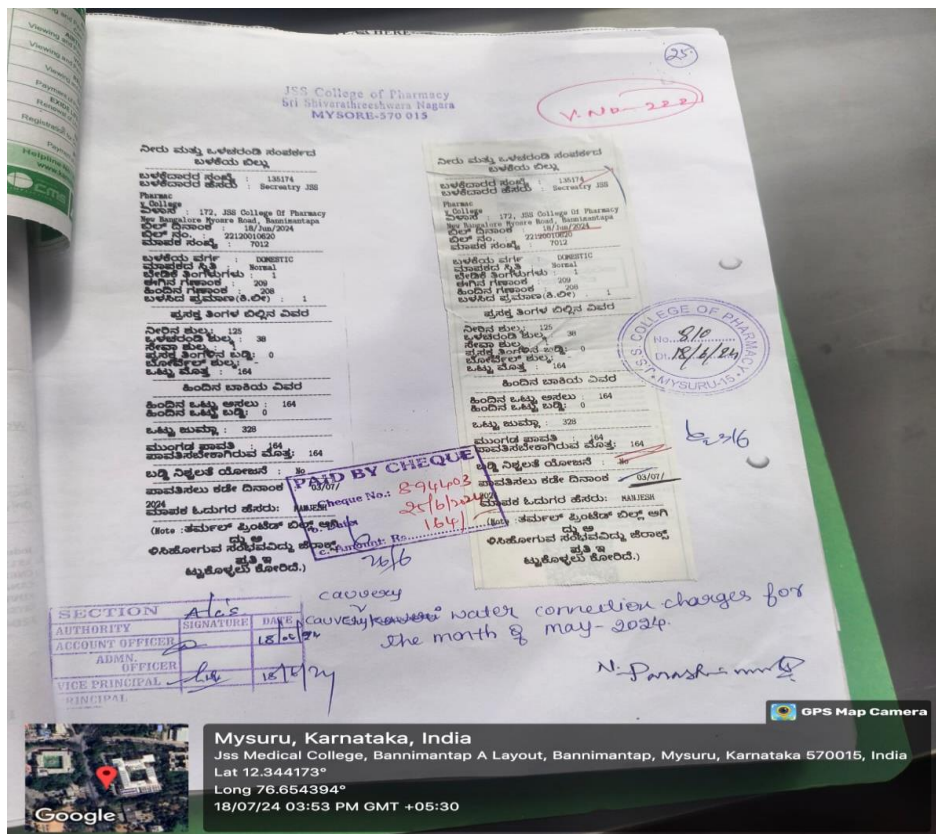 25.
JSS College of Pharmacy
Sri Shivarathreeshwara Nagara
MYSORE-570 015
V. No - 222
ನೀರು ಮತ್ತು ಒಳಚರಂಡಿ ಸಂಪರ್ಕದ
ಬಳಕೆಯ ಬಿಲ್ಲು
ಬಳಕೆದಾರರ ಸಂಖ್ಯೆ : 135174
ಬಳಕೆದಾರರ ಹೆಸರು : Secreatry JSS
Pharmac
y College
ವಿಳಾಸ : 172, JSS College Of Pharmacy
New Bangalore Mysore Road, Bannimantapa
ಬಿಲ್ ದಿನಾಂಕ : 18/Jun/2024
ಬಿಲ್ ನಂ. : 22120010620
ಮಾಪಕ ಸಂಖ್ಯೆ : 7012
ಬಳಕೆಯ ವರ್ಗ : DOMESTIC
ಮಾಪಕದ ಸ್ಥಿತಿ : Normal
ಬೇಡಿಕೆ ತಿಂಗಳುಗಳು : 1
ಈಗಿನ ಗಣಾಂಕ : 209
ಹಿಂದಿನ ಗಣಾಂಕ : 208
ಬಳಸಿದ ಪ್ರಮಾಣ(ಕಿ.ಲೀ) : 1
ಪ್ರಸಕ್ತ ತಿಂಗಳ ಬಿಲ್ಲಿನ ವಿವರ
ನೀರಿನ ಶುಲ್ಕ: 125
ಒಳಚರಂಡಿ ಶುಲ್ಕ : 38
ಸೇವಾ ಶುಲ್ಕ : 1
ಪ್ರಸಕ್ತ ತಿಂಗಳಿನ ಬಡ್ಡಿ: 0
ಬೋರ್ವೆಲ್ ಶುಲ್ಕ: -
ಒಟ್ಟು ಮೊತ್ತ : 164
ಹಿಂದಿನ ಬಾಕಿಯ ವಿವರ
ಹಿಂದಿನ ಒಟ್ಟು ಅಸಲು : 164
ಹಿಂದಿನ ಒಟ್ಟು ಬಡ್ಡಿ: 0
ಒಟ್ಟು ಜುಮ್ಲಾ : 328
ಮುಂಗಡ ಪಾವತಿ : 164
ಪಾವತಿಸಬೇಕಾಗಿರುವ ಮೊತ್ತ: 164
ಬಡ್ಡಿ ನಿಶ್ಚಲತೆ ಯೋಜನೆ : No
ಪಾವತಿಸಲು ಕಡೇ ದಿನಾಂಕ : 03/07/
2024
ಮಾಪಕ ಓದುಗರ ಹೆಸರು: MANJESH
(Note :ತರ್ಮಲ್ ಪ್ರಿಂಟೆಡ್ ಬಿಲ್ಲ್ ಆಗಿ
ದ್ದು ಅ
ಳಿಸಿಹೋಗುವ ಸಂಭವವಿದ್ದು ಜೆರಾಕ್ಸ್
ಪ್ರತಿ ಇ
ಟ್ಟುಕೊಳ್ಳಲು ಕೋರಿದೆ.)
ನೀರು ಮತ್ತು ಒಳಚರಂಡಿ ಸಂಪರ್ಕದ
ಬಳಕೆಯ ಬಿಲ್ಲು
ಬಳಕೆದಾರರ ಸಂಖ್ಯೆ : 135174
ಬಳಕೆದಾರರ ಹೆಸರು : Secreatry JSS
Pharmac
y College
ವಿಳಾಸ : 172, JSS College Of Pharmacy
New Bangalore Mysore Road, Bannimantapa
ಬಿಲ್ ದಿನಾಂಕ : 18/Jun/2024
ಬಿಲ್ ನಂ. : 22120010620
ಮಾಪಕ ಸಂಖ್ಯೆ : 7012
ಬಳಕೆಯ ವರ್ಗ : DOMESTIC
ಮಾಪಕದ ಸ್ಥಿತಿ : Normal
ಬೇಡಿಕೆ ತಿಂಗಳುಗಳು : 1
ಈಗಿನ ಗಣಾಂಕ : 209
ಹಿಂದಿನ ಗಣಾಂಕ : 208
ಬಳಸಿದ ಪ್ರಮಾಣ(ಕಿ.ಲೀ) : 1
ಪ್ರಸಕ್ತ ತಿಂಗಳ ಬಿಲ್ಲಿನ ವಿವರ
ನೀರಿನ ಶುಲ್ಕ: 125
ಒಳಚರಂಡಿ ಶುಲ್ಕ : 38
ಸೇವಾ ಶುಲ್ಕ : 1
ಪ್ರಸಕ್ತ ತಿಂಗಳಿನ ಬಡ್ಡಿ: 0
ಬೋರ್ವೆಲ್ ಶುಲ್ಕ: -
ಒಟ್ಟು ಮೊತ್ತ : 164
ಹಿಂದಿನ ಬಾಕಿಯ ವಿವರ
ಹಿಂದಿನ ಒಟ್ಟು ಅಸಲು : 164
ಹಿಂದಿನ ಒಟ್ಟು ಬಡ್ಡಿ: 0
ಒಟ್ಟು ಜುಮ್ಲಾ : 328
ಮುಂಗಡ ಪಾವತಿ : 164
ಪಾವತಿಸಬೇಕಾಗಿರುವ ಮೊತ್ತ: 164
ಬಡ್ಡಿ ನಿಶ್ಚಲತೆ ಯೋಜನೆ : No
ಪಾವತಿಸಲು ಕಡೇ ದಿನಾಂಕ : 03/07/
ಮಾಪಕ ಓದುಗರ ಹೆಸರು: MANJESH
(Note :ತರ್ಮಲ್ ಪ್ರಿಂಟೆಡ್ ಬಿಲ್ಲ್ ಆಗಿ
ದ್ದು ಅ
ಳಿಸಿಹೋಗುವ ಸಂಭವವಿದ್ದು ಜೆರಾಕ್ಸ್
ಪ್ರತಿ ಇ
ಟ್ಟುಕೊಳ್ಳಲು ಕೋರಿದೆ.)
J.S.S. COLLEGE OF PHARMACY
No. 810
Dt. 18/6/24
MYSURU-15
PAID BY CHEQUE
Cheque No.: 894403
25/6/2024
Amount: Rs. 164/
26/6
cauvery
cauvery water connection charges for
the month of may-2024.
SECTION A/c's
AUTHORITY SIGNATURE DATE
ACCOUNT OFFICER
ADMN. OFFICER
VICE PRINCIPAL 18/6/24
PRINCIPAL
GPS Map Camera
Mysuru, Karnataka, India
Jss Medical College, Bannimantap A Layout, Bannimantap, Mysuru, Karnataka 570015, India
Lat 12.344173°
Long 76.654394°
18/07/24 03:53 PM GMT +05:30
Google